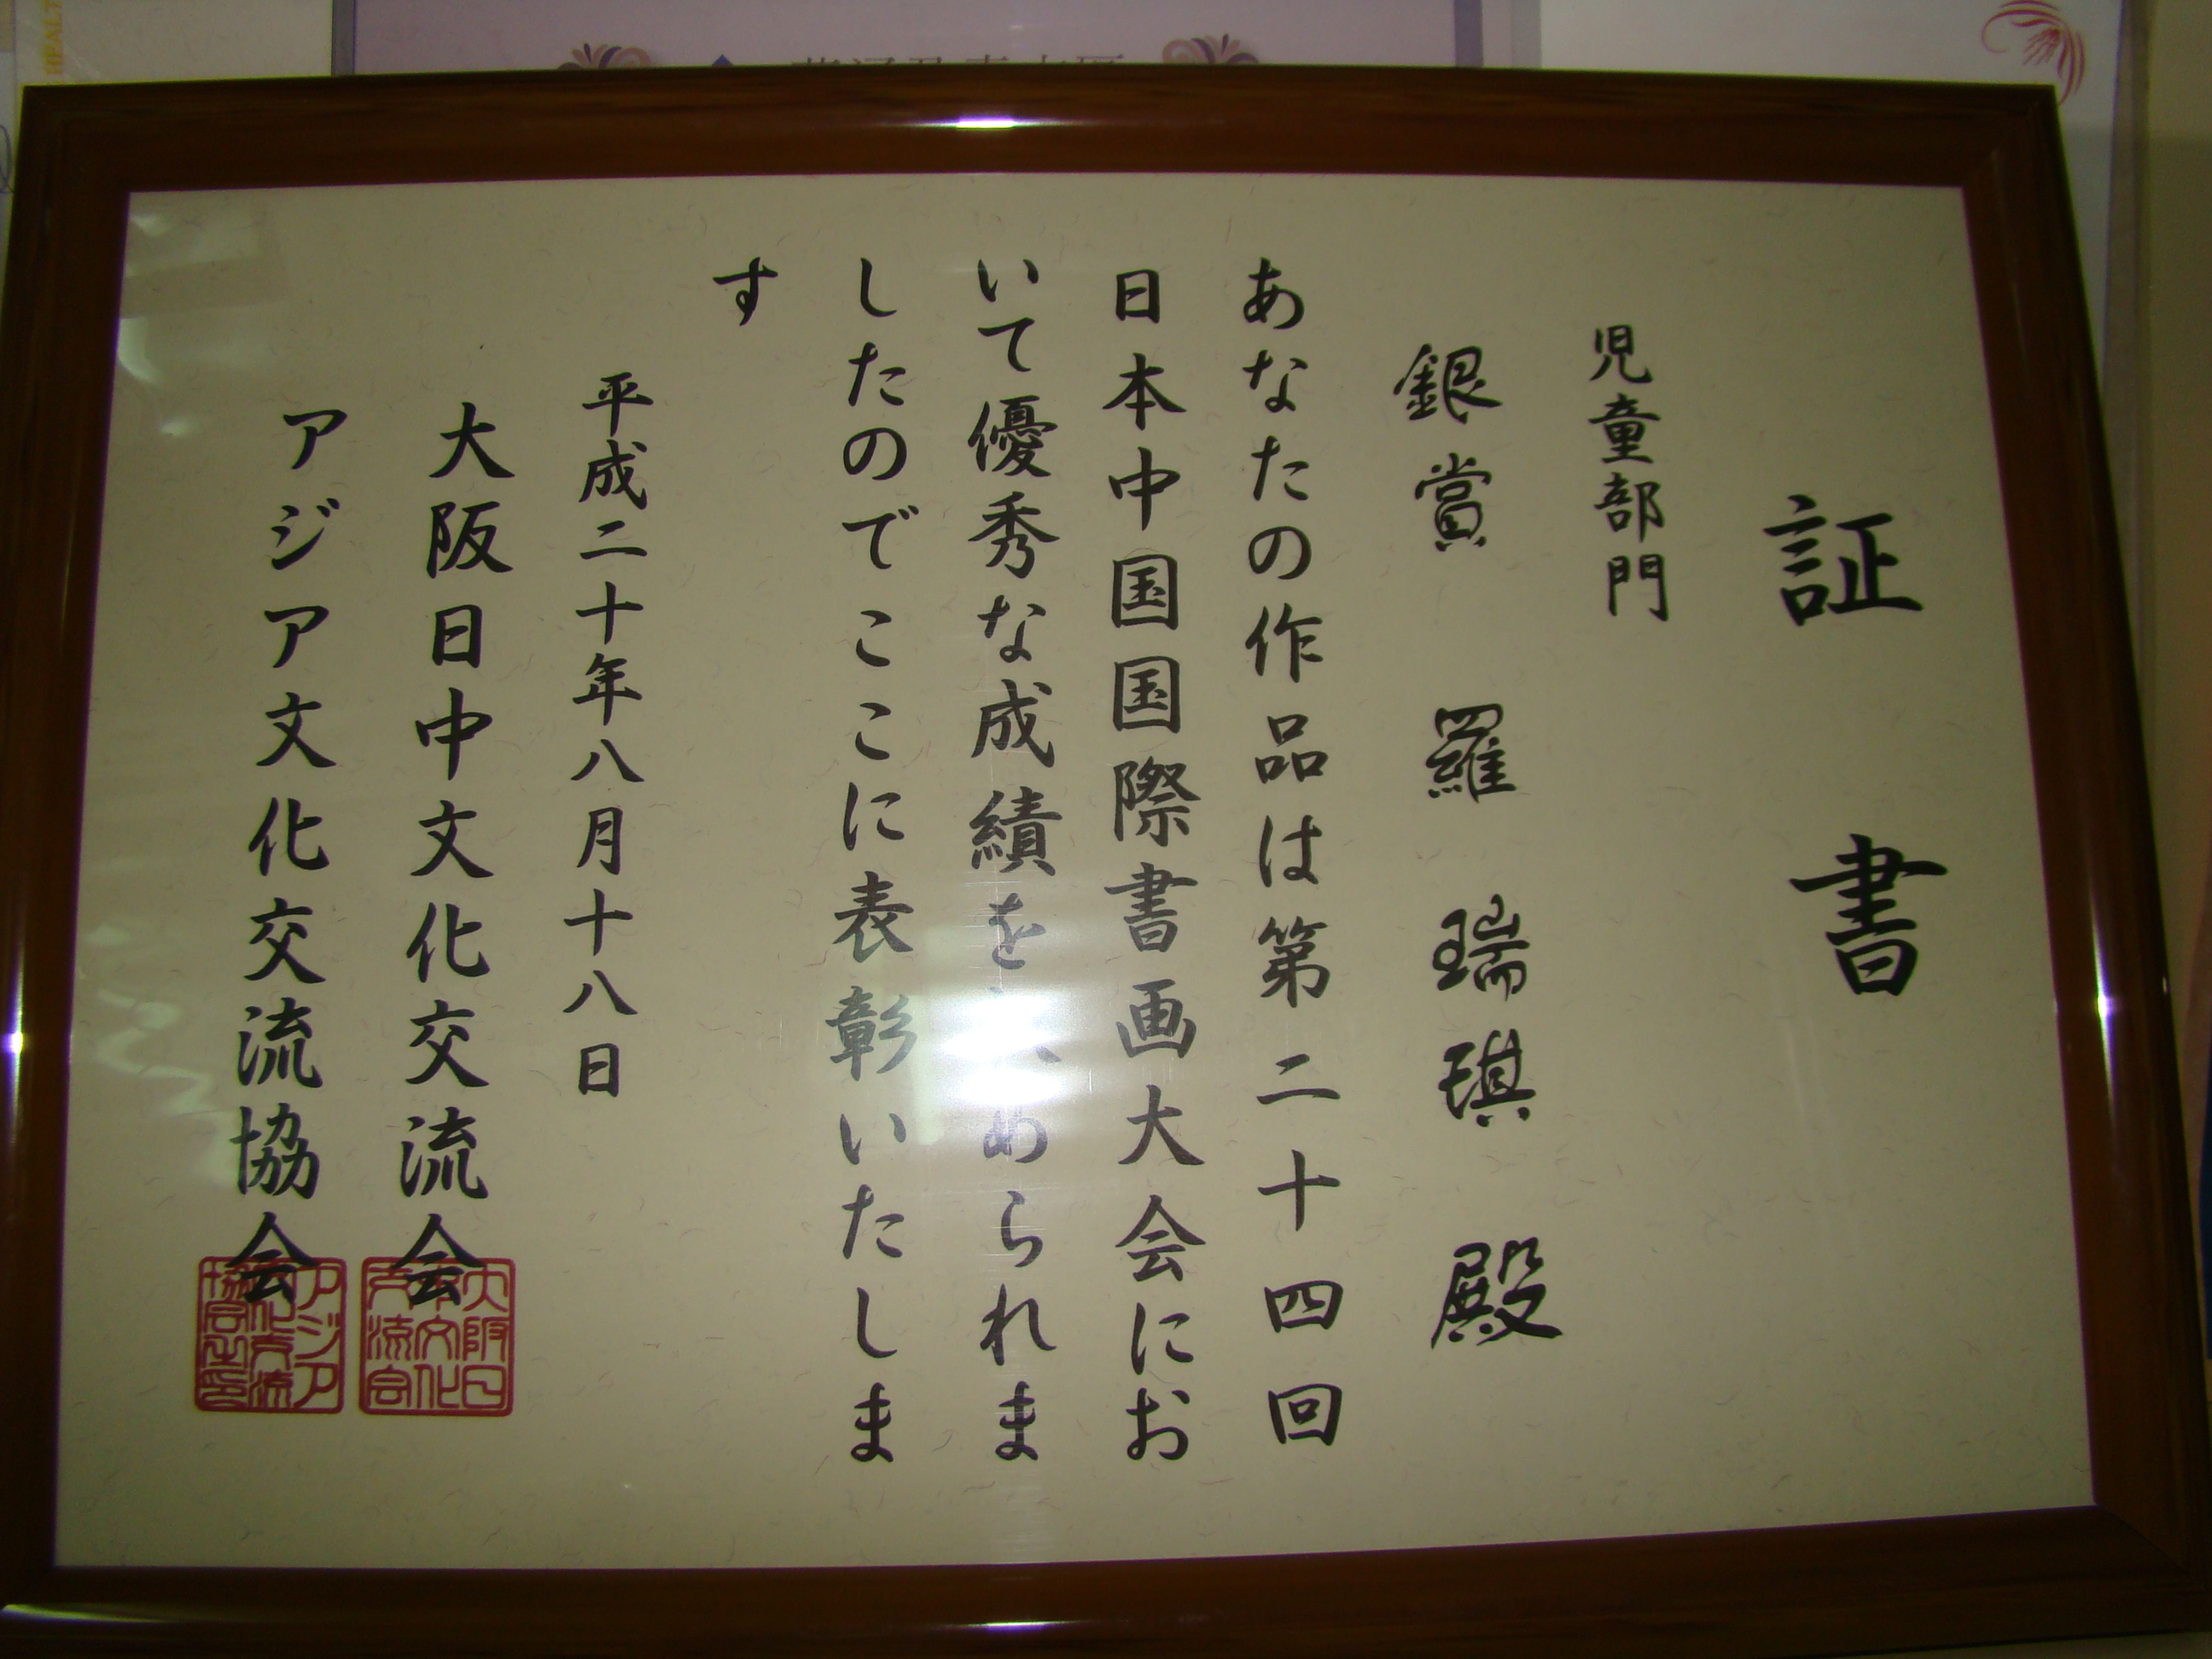 証書
児童部門
銀賞 羅瑞琪 殿
あなたの作品は第二十四回
日本中国国際書画大会にお
いて優秀な成績を められま
したのでここに表彰いたしま
す
平成二十年八月十八日
大阪日中文化交流会
アジア文化交流協会
HEALT